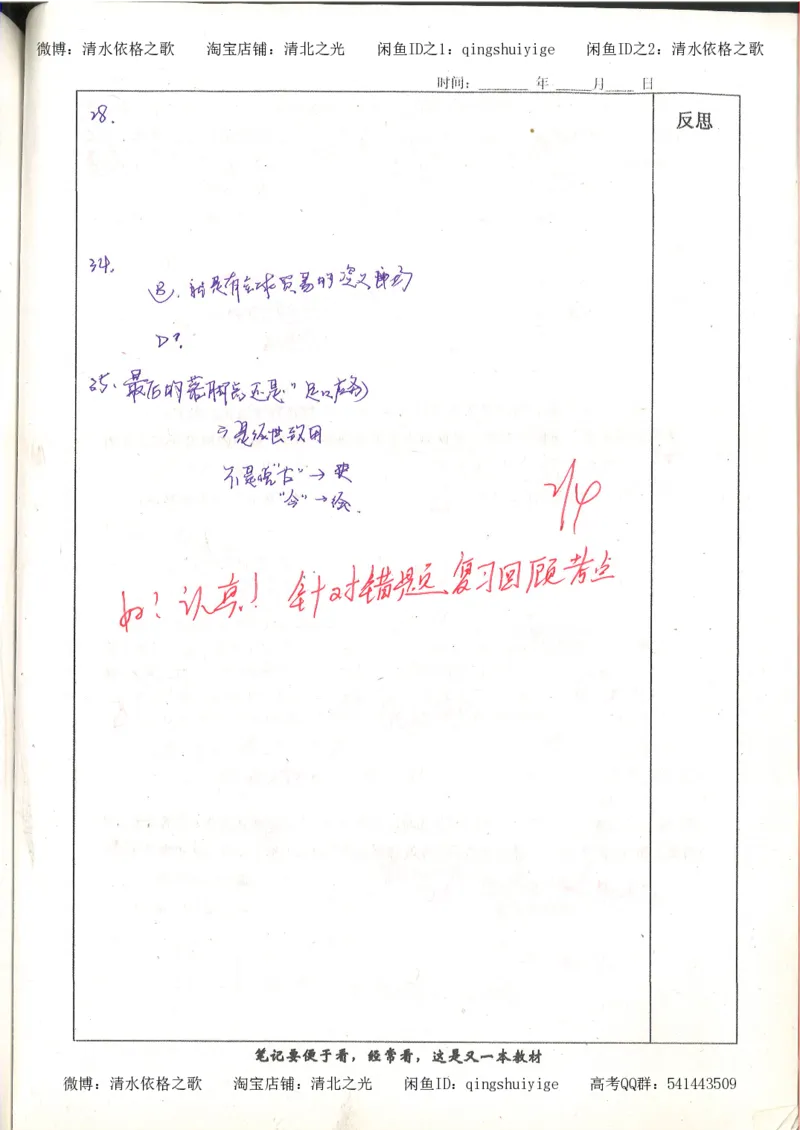 微博：清水依格之歌 淘宝店铺：清北之光 闲鱼ID之1：qingshuiyige 闲鱼ID之2：清水依格之歌
时间：______ 年 _____月____ 日
反思
28.
34.
B. 就是有全球贸易的定义
D?
35. 最后的落脚点还是"足以
是经世致用
不是说"古"→史
"今"→经.
2/4
认真！针对错题、复习回顾考点
笔记要便于看，经常看，这是又一本教材
微博：清水依格之歌 淘宝店铺：清北之光 闲鱼ID：qingshuiyige 高考QQ群：541443509